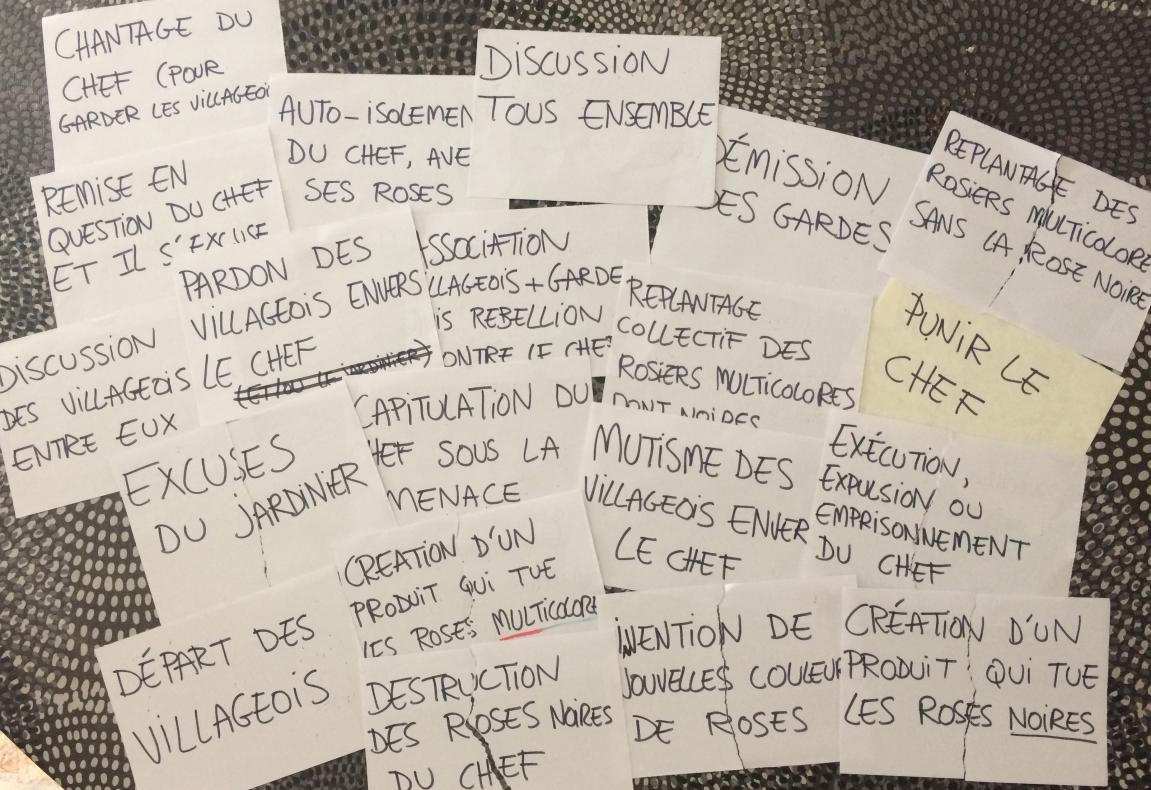 CHANTAGE DU
CHEF (POUR
GARDER LES VILLAGEOI
AUTO-ISOLEMEN
DU CHEF, AVE
SES ROSES
DISCUSSION
TOUS ENSEMBLE
DÉMISSION
DES GARDES
REPLANTAGE DES
ROSIERS MULTICOLORE
SANS LA ROSE NOIRE
REMISE EN
QUESTION DU CHEF
ET IL S'EXCUSE
PARDON DES
VILLAGEOIS ENVERS
LE CHEF
(ET/OU LE JARDINIER)
SSOCIATION
LLAGEOIS + GARDE
IS REBELLION
ONTRE LE CHE
REPLANTAGE
COLLECTIF DES
ROSIERS MULTICOLORES
DONT NOIRES
PUNIR LE
CHEF
DISCUSSION
DES VILLAGEOIS
ENTRE EUX
EXCUSES
DU JARDINIER
CAPITULATION DU
HEF SOUS LA
MENACE
MUTISME DES
VILLAGEOIS ENVER
LE CHEF
EXÉCUTION,
EXPULSION OU
EMPRISONNEMENT
DU CHEF
CREATION D'UN
PRODUIT QUI TUE
LES ROSES MULTICOLORE
DÉPART DES
VILLAGEOIS
DESTRUCTION
DES ROSES NOIRES
DU CHEF
INVENTION DE
NOUVELLES COULEUR
DE ROSES
CRÉATION D'UN
PRODUIT QUI TUE
LES ROSES NOIRES